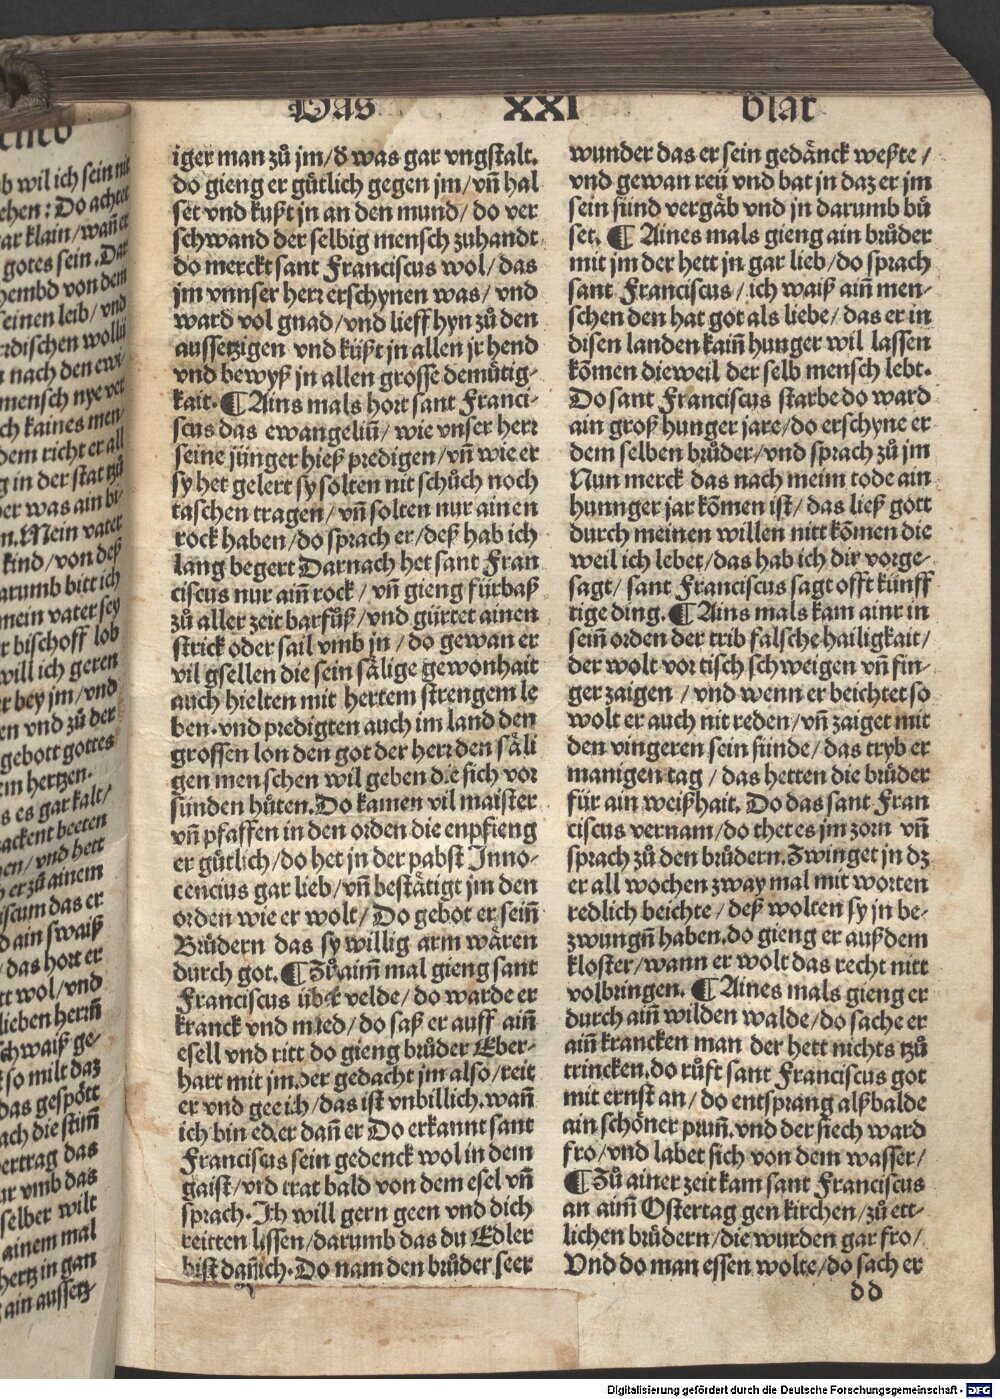 Das XXI blat
b wil ich sein nit
ehen: Do achtet
ar klain/wañ er
gotes sein. Dar
hembd von dem
seinen leib/vnd
rdischen wollü
nach den ewi
mensch nye ver
ch kaines men-
dem richt er all
g in der stat tzů
er was ain bi-
n. Mein vater
kind/von deß
arumb bitt ich
mein vater sey
r bischoff lob
will ich geren
r bey jm/vnd
en vnd zů der
gebott gottes
em hertzen.
s es gar kalt/
nackent beeten
en/vnd hett
er zů ainem
iscum das er
d ain swaiß
das hort er
tt wol/vnd
lieben herrñ
schwaiß ge-
so milt daz
das gespött
ach die stim̃
ertrag das
ur vmb das
selber wilt
ainem mal
hertz in gan
ain aussetz-
iger man zů jm/d̕ was gar vngstalt.
do gieng er gůtlich gegen jm/vñ hal
set vnd kußt jn an den mund/do ver
schwand der selbig mensch zuhandt
do merckt sant Franciscus wol/das
jm vnnser herr erschynen was/vnd
ward vol gnad/vnd lieff hyn zů den
aussetzigen vnd küßt jn allen jr hend
vnd bewyß jn allen grosse demůtig-
kait. ¶ Ains mals hort sant Franci-
scus das ewangeliũ/wie vnser herr
seine jünger hieß predigen/vñ wie er
sy het gelert sy solten nit schůch noch
taschen tragen/vñ solten nur ainen
rock haben/do sprach er/deß hab ich
lang begert Darnach het sant Fran
ciscus nur aiñ rock/vñ gieng fürbaß
zů aller zeit barfůß/vnd gürtet ainen
strick oder sail vmb jn/do gewan er
vil gsellen die sein sålige gewonhait
auch hielten mit hertem strengem le
ben. vnd predigten auch im land den
grossen lon den got der herr den såli
gen menschen wil geben die sich vor
sünden hůten. Do kamen vil maister
vñ pfaffen in den orden die enpfieng
er gůtlich/do het jn der pabst Inno-
cencius gar lieb/vñ bestätigt jm den
orden wie er wolt/Do gebot er seiñ
Brůdern das sy willig arm wåren
durch got. ¶ Zů aim̃ mal gieng sant
Franciscus über velde/do warde er
kranck vnd mued/do saß er auff aiñ
esell vnd ritt do gieng brůder Eber-
hart mit jm. der gedacht jm also/reit
er vnd gee ich/das ist vnbillich. wañ
ich bin edler dañ er Do erkannt sant
Franciscus sein gedenck wol in dem
gaist/vnd trat bald von dem esel vñ
sprach. Ich will gern geen vnd dich
reitten lassen/darumb das du Edler
bist dañ ich. Do nam den brůder seer
wunder das er sein gedånck weßte/
vnd gewan reü vnd bat jn daz er jm
sein sünd vergåb vnd jn darumb bů
set. ¶ Aines mals gieng ain brůder
mit jm der hett jn gar lieb/do sprach
sant Franciscus/ich waiß aiñ men-
schen den hat got als liebe/das er in
disen landen kaiñ hunger wil lassen
kõmen dieweil der selb mensch lebt.
Do sant Franciscus starbe do ward
ain groß hunger jare/do erschyne er
dem selben brůder/vnd sprach zů jm
Nun merck das nach meim tode ain
hunnger jar kõmen ist/das ließ gott
durch meinen willen nitt kõmen die
weil ich lebet/das hab ich dir vorge-
sagt/sant Franciscus sagt offt künff
tige ding. ¶ Ains mals kam ainr in
seiñ orden der trib falsche hailigkait/
der wolt vor tisch schweigen vñ fin-
ger zaigen/vnd wenn er beichtet so
wolt er auch nit reden/vñ zaiget mit
den vingeren sein sünde/das tryb er
manigen tag/das hetten die brůder
für ain weißhait. Do das sant Fran
ciscus vernam/do thet es jm zorn vñ
sprach zů den brůdern. Zwinget jn dz
er all wochen zway mal mit worten
redlich beichte/deß wolten sy jn be-
zwungñ haben. do gieng er auß dem
kloster/wann er wolt das recht nitt
volbringen. ¶ Aines mals gieng er
durch aiñ wilden walde/do sache er
aiñ krancken man der hett nichts tzů
trincken. do růft sant Franciscus got
mit ernst an/do entsprang alßbalde
ain schöner prum̃. vnd der siech ward
fro/vnd labet sich von dem wasser/
¶ Zů ainer zeit kam sant Franciscus
an aim̃ Ostertag gen kirchen/zů ett-
lichen brůdern/die wurden gar fro/
Vnd do man essen wolte/do sach er
dd
Digitalisierung gefördert durch die Deutsche Forschungsgemeinschaft - DFG